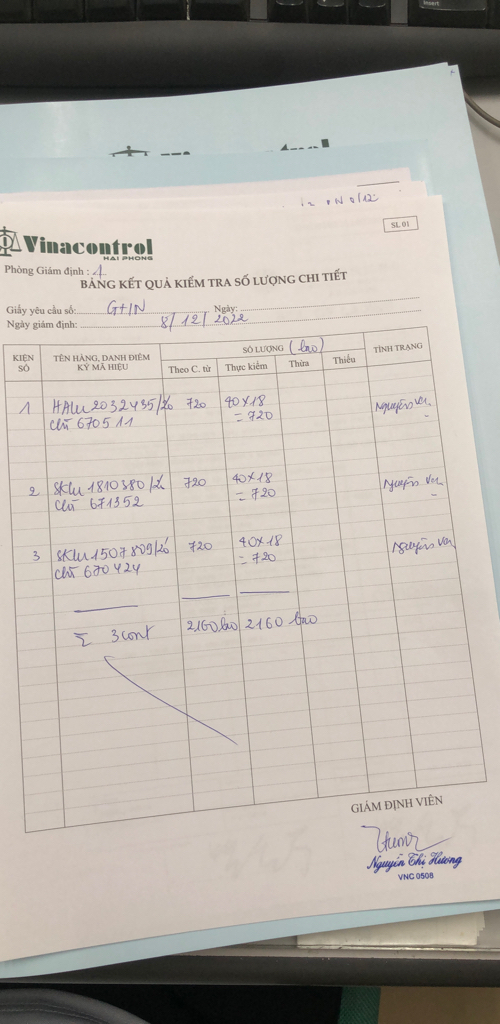 Insert
SL 01
Vinacontrol
HAI PHONG
Phòng Giám định : 4
BẢNG KẾT QUẢ KIỂM TRA SỐ LƯỢNG CHI TIẾT
Giấy yêu cầu số: G+IN Ngày:
Ngày giám định: 8/12/2022
KIỆN SỐ TÊN HÀNG, DANH ĐIỂM KÝ MÃ HIỆU SỐ LƯỢNG (bao) TÌNH TRẠNG
Theo C. từ Thực kiểm Thừa Thiếu
1 HALU 2032435/20 720 40x18 Nguyên vẹn
Chì 670511 = 720
2 SKLU 1810380/20 720 40x18 Nguyên vẹn
Chì 671352 = 720
3 SKLU 1507809/20 720 40x18 Nguyên vẹn
Chì 670424 = 720
Σ 3 cont 2160 bao 2160 bao
GIÁM ĐỊNH VIÊN
Nguyễn Thị Hương
VNC 0508